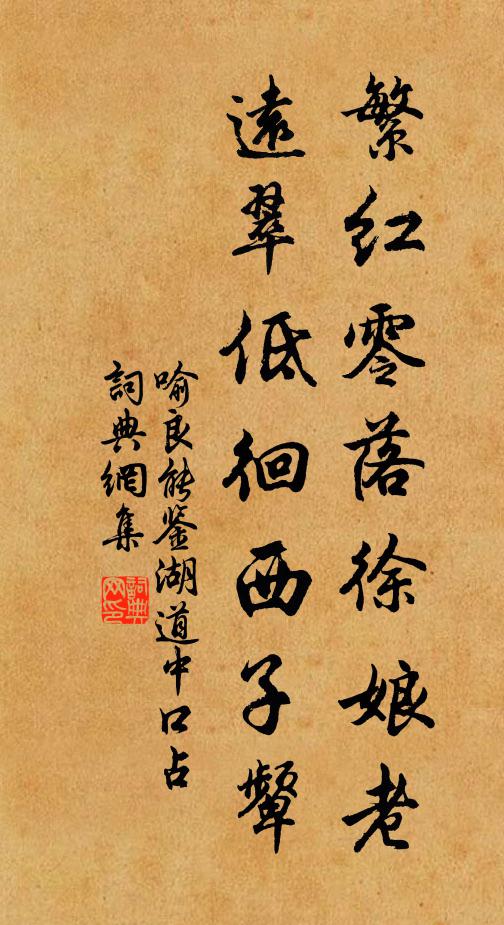 繁红零落徐娘老
遠翠低徊西子顰
喻良能鉴湖道中口占
詞典網集
詞典网印